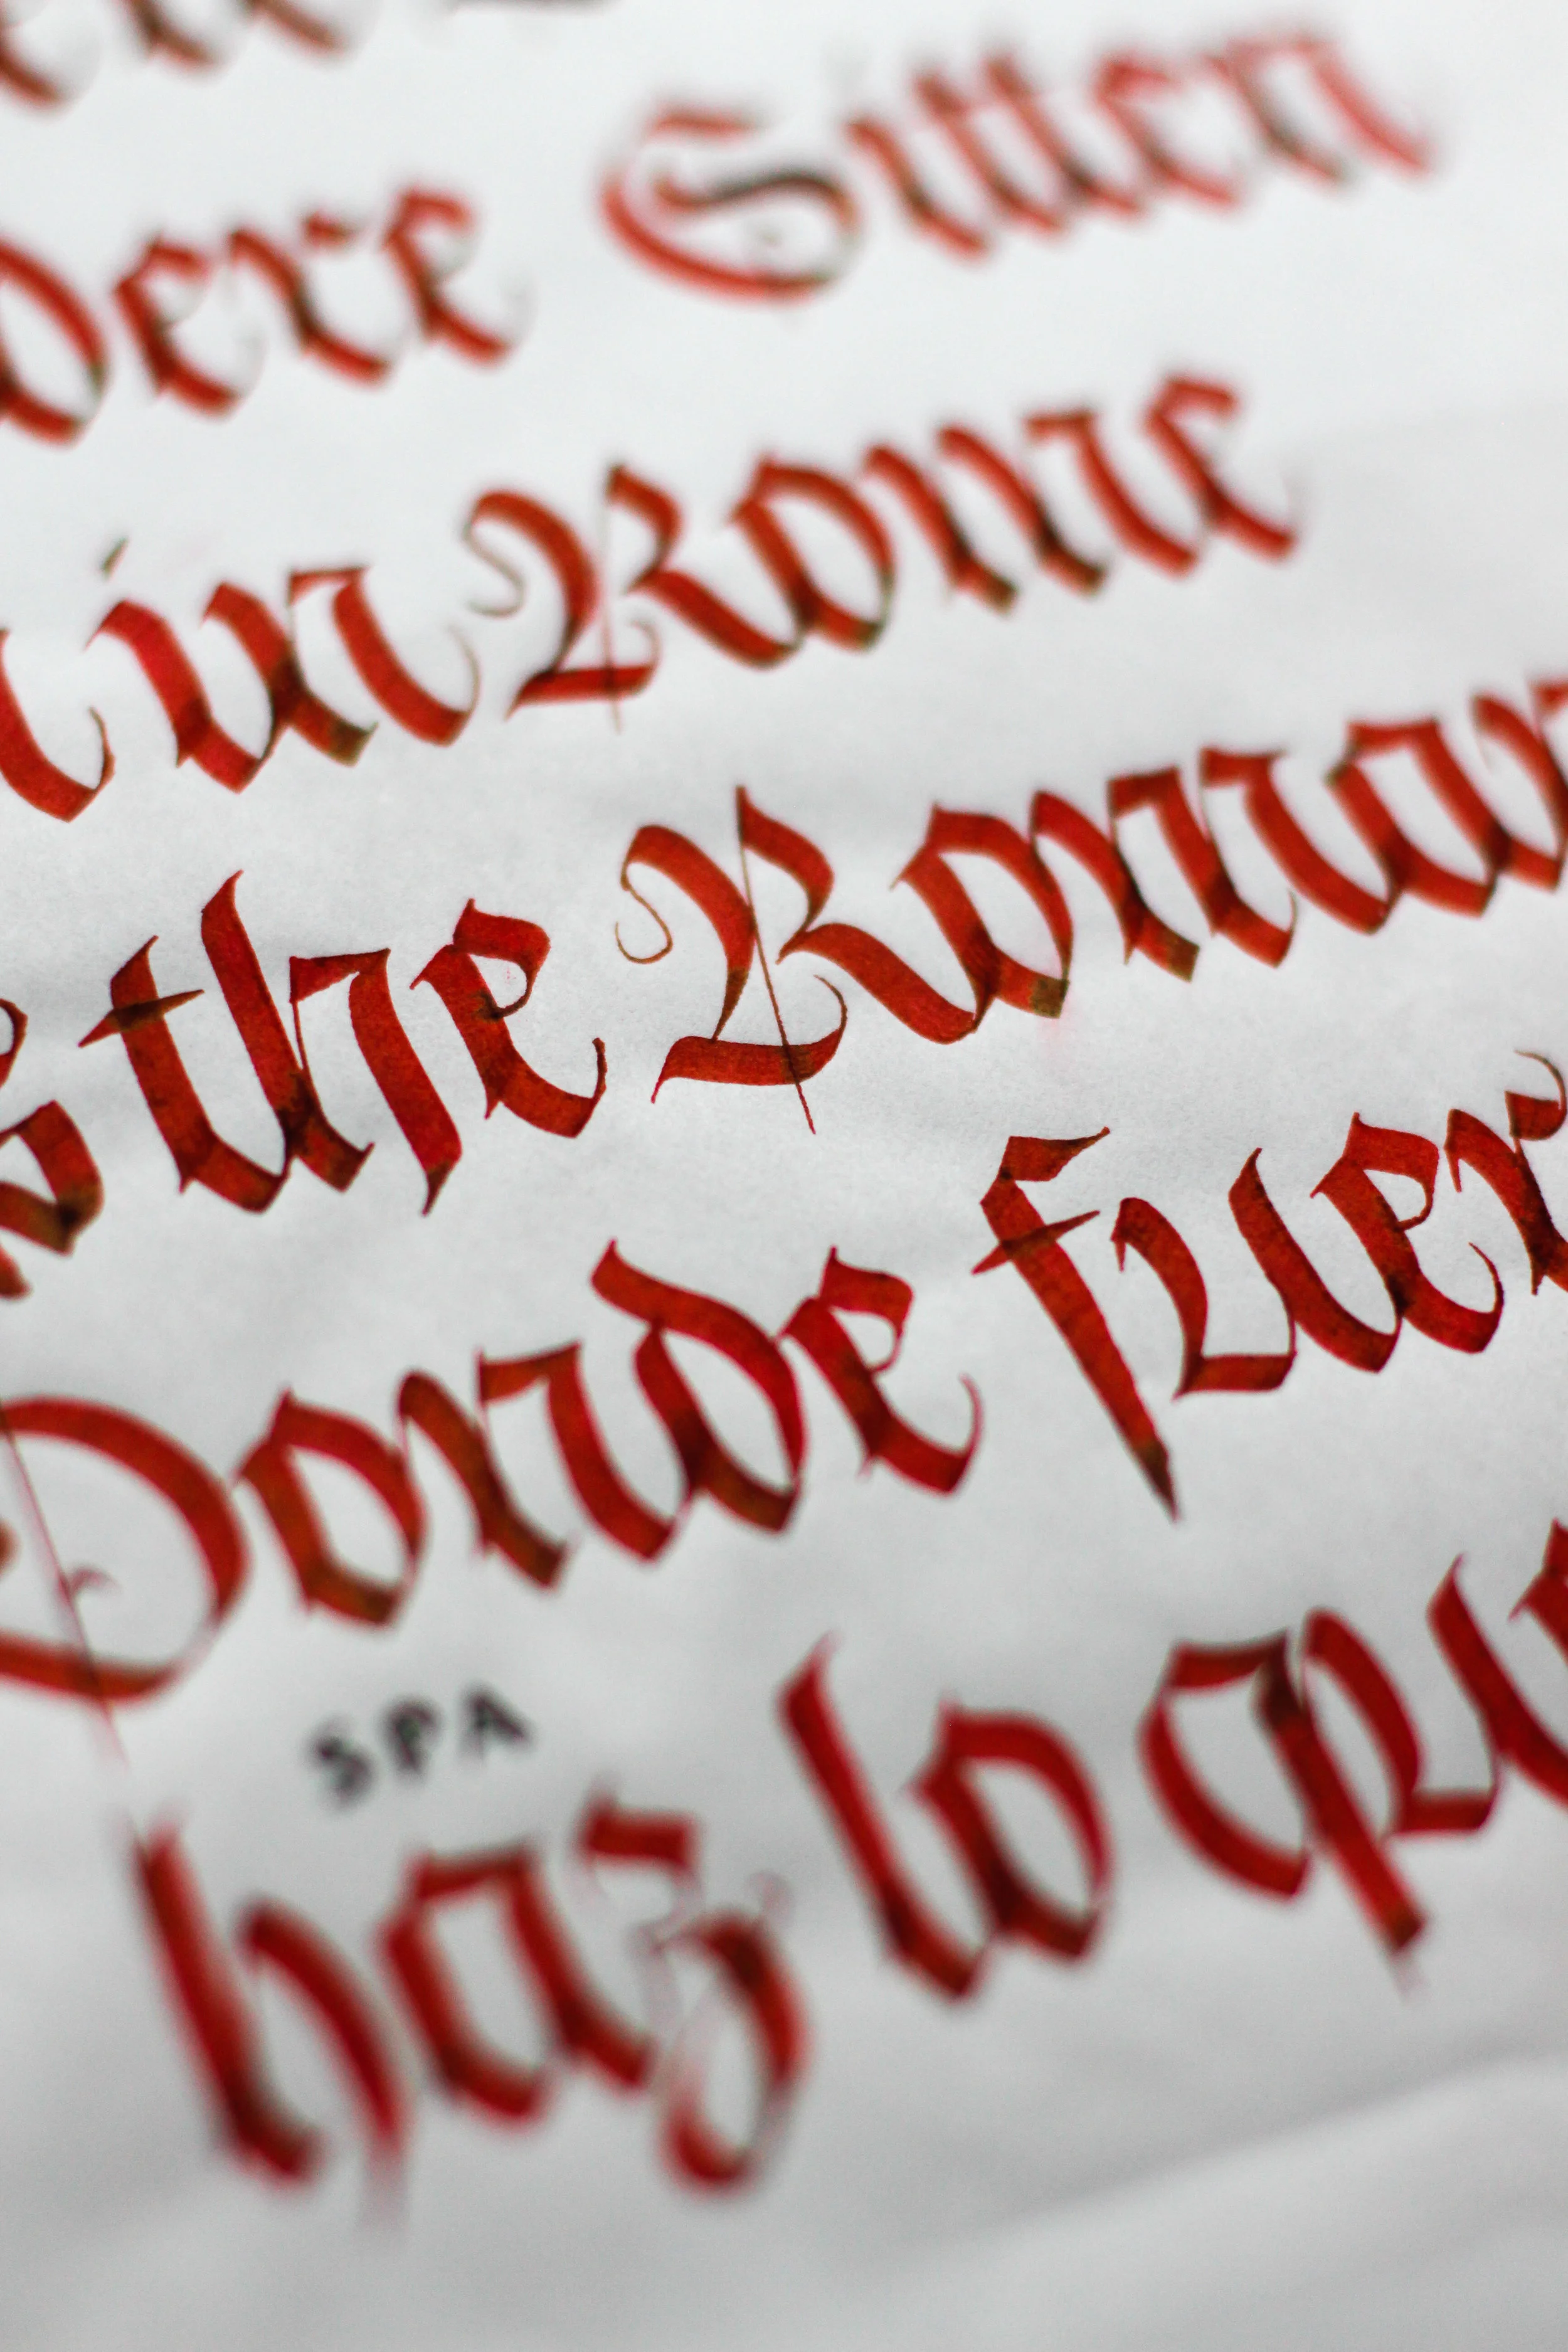 dere Sitten
in Rome
s the Roman
Donde fuer
SPA
haz lo que